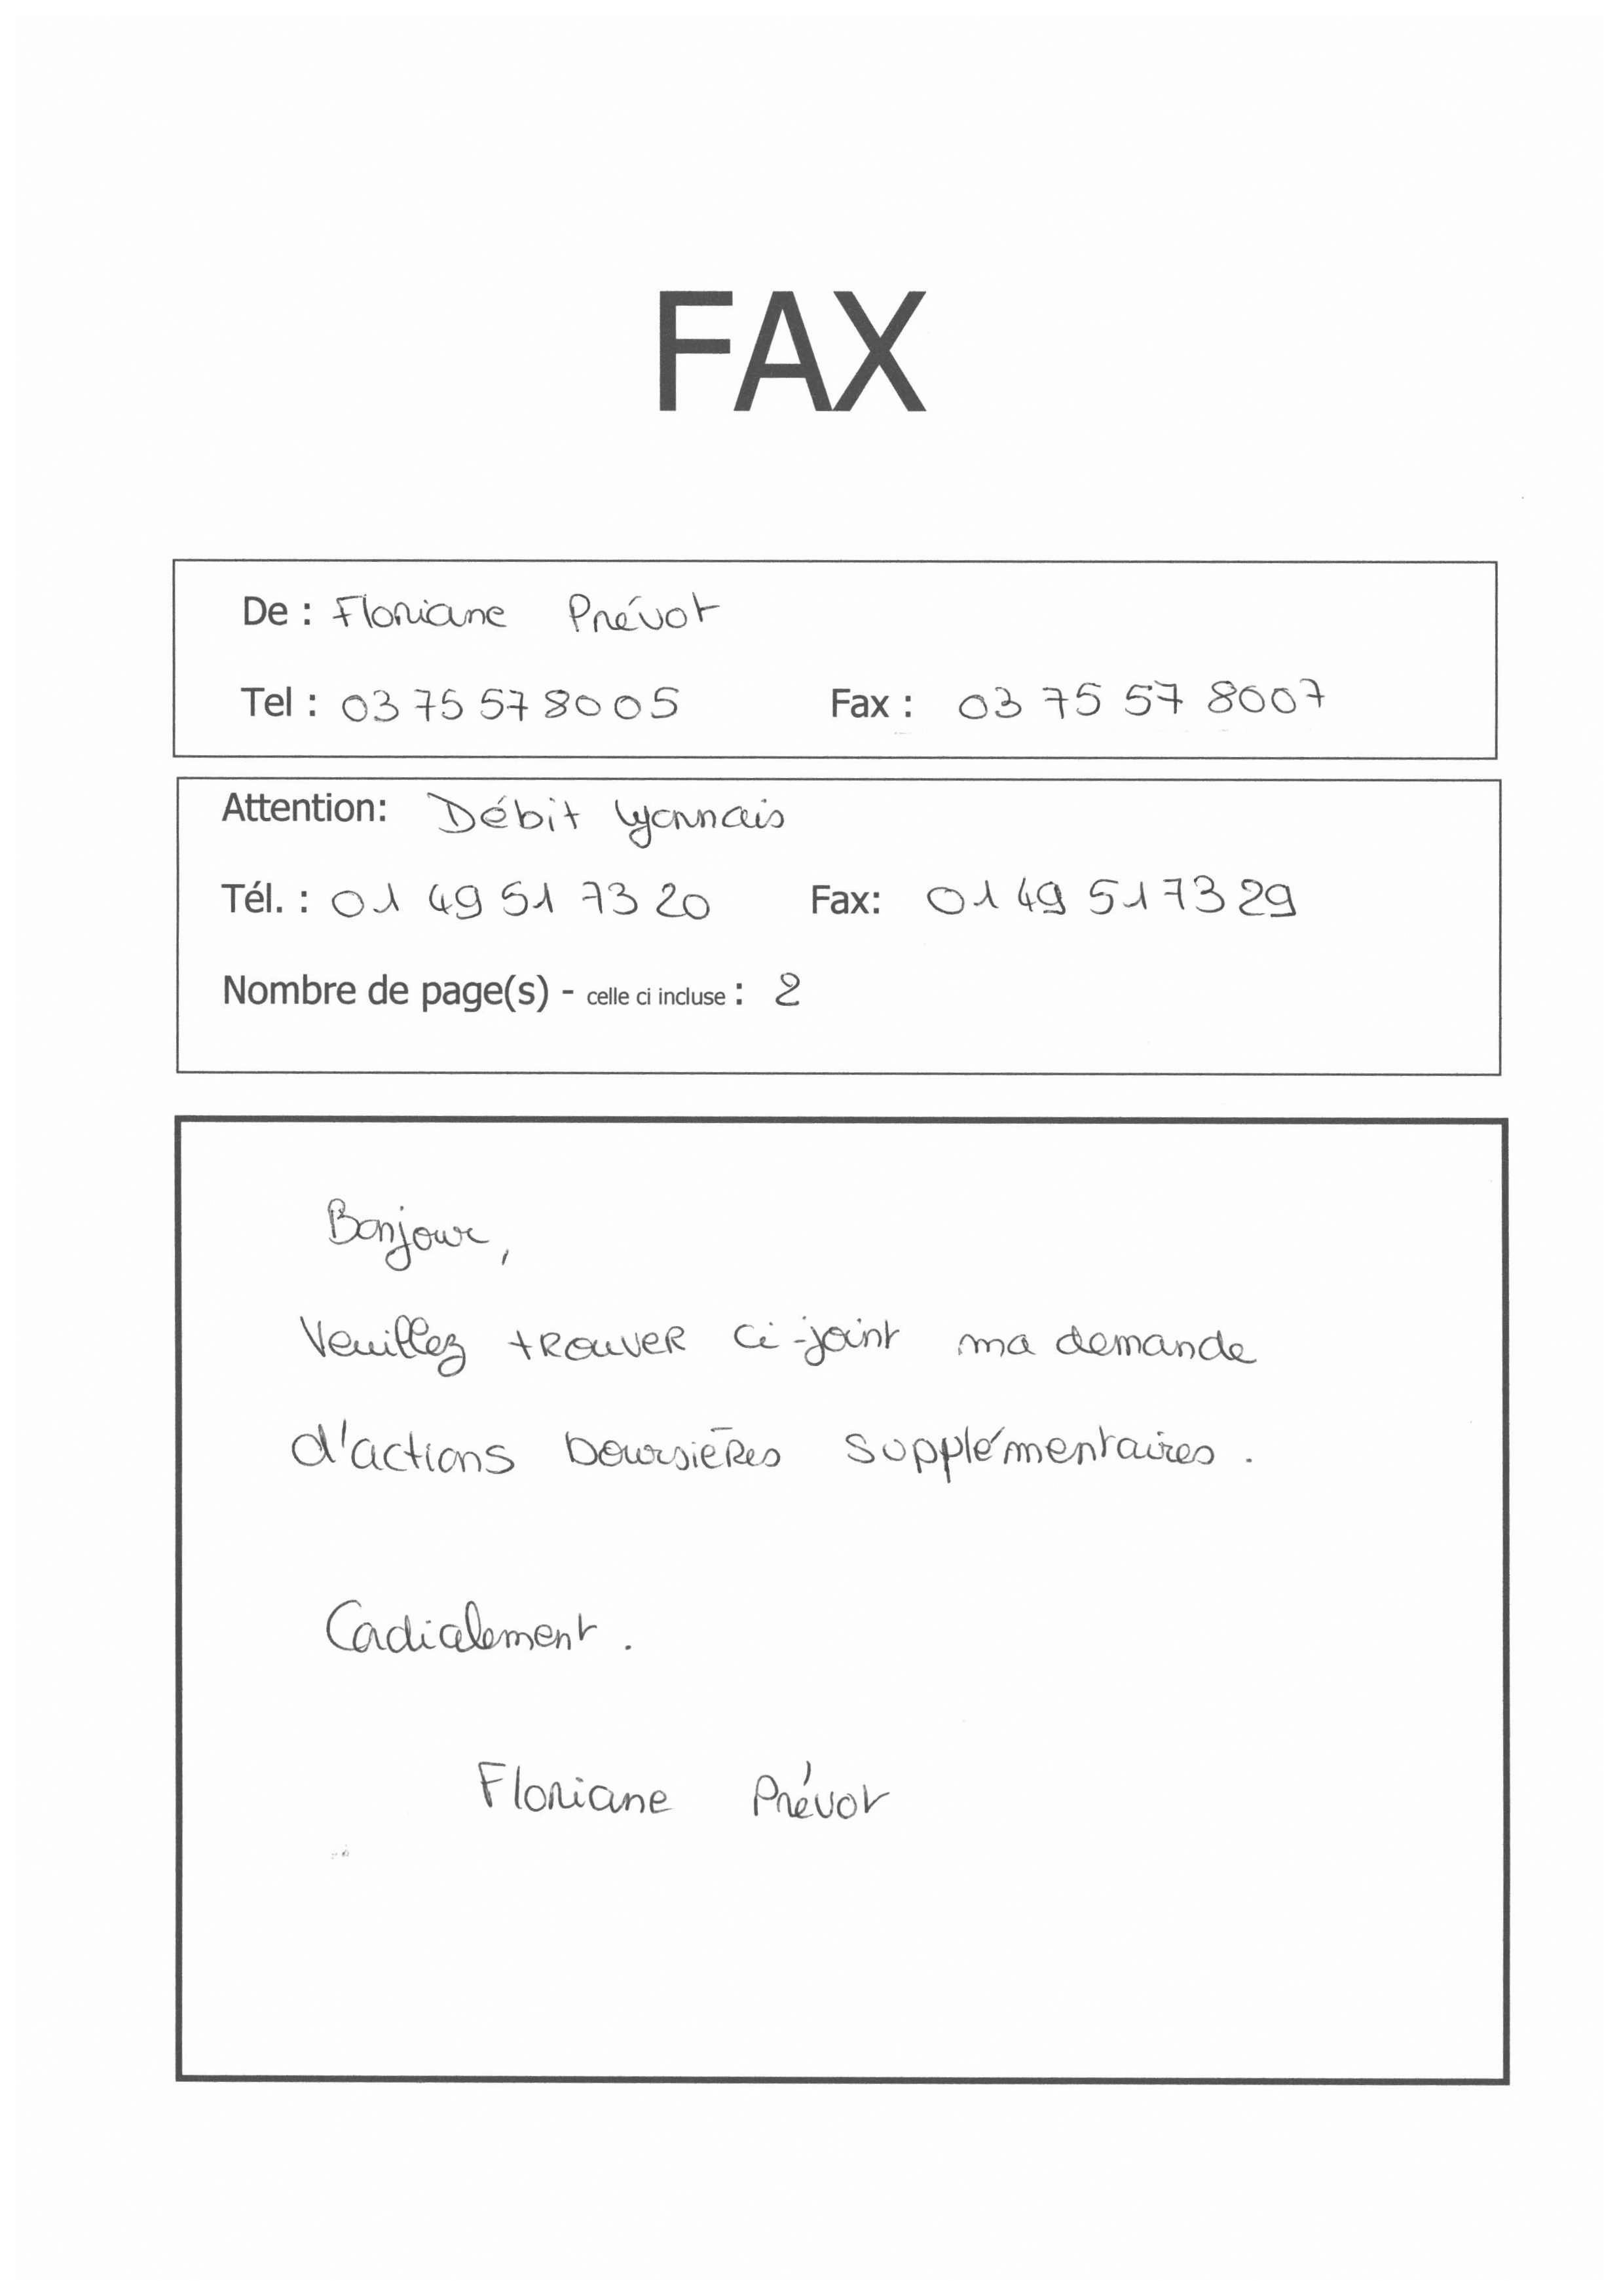 FAX
De : Floriane Prévot
Tel : 03 75 57 80 05 Fax : 03 75 57 8007
Attention: Débit Lyonnais
Tél. : 01 49 51 73 20 Fax: 01 49 51 73 29
Nombre de page(s) - celle ci incluse : 2
Bonjour,
Veuillez trouver ci-joint ma demande
d'actions boursières supplémentaires.
Cordialement.
Floriane Prévot